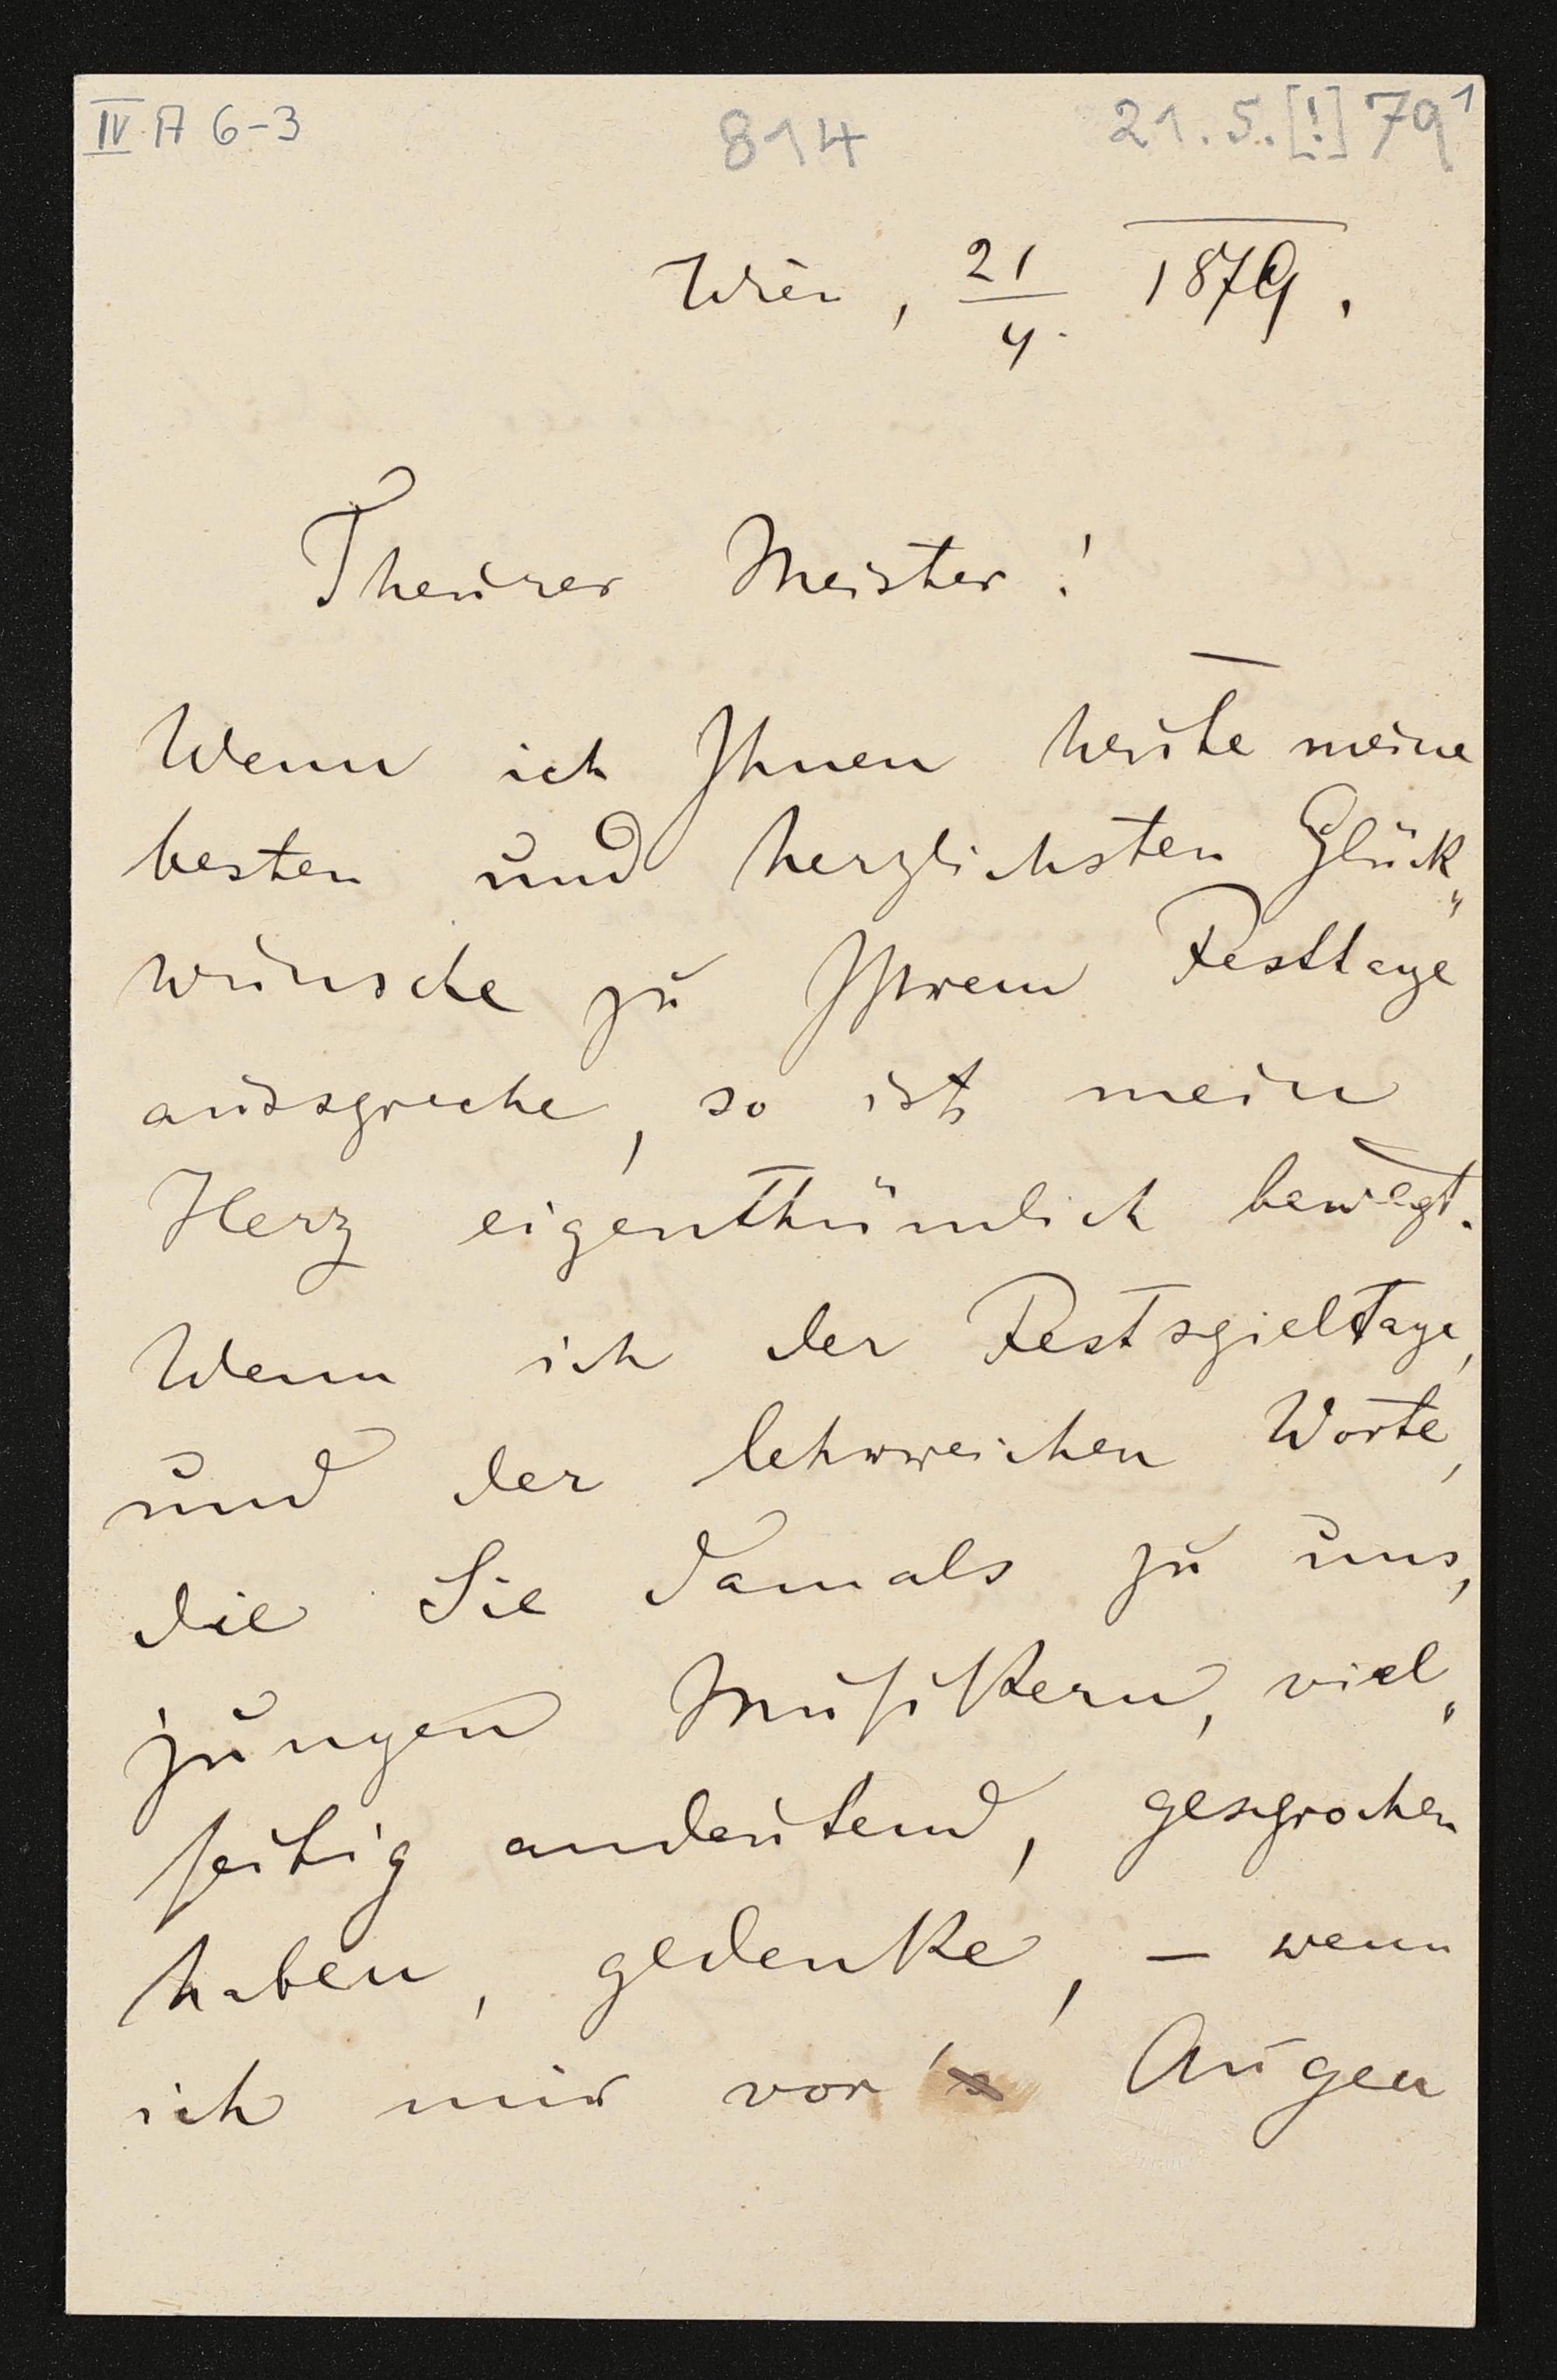 IV A 6-3 814 21.5.[!] 79¹
Wien, 21/4. 1879.
Theurer Meister!
Wenn ich Ihnen heute meine
besten und herzlichsten Glück„
wünsche zu Ihrem Festtage
ausspreche, so ist mein
Herz eigenthümlich bewegt.
Wenn ich der Festspieltage,
und der lehrreichen Worte,
die Sie damals zu uns,
jungen Musikern, viel„
seitig andeutend, gesprochen
haben, gedenke, – wenn
ich mir vor's Augen